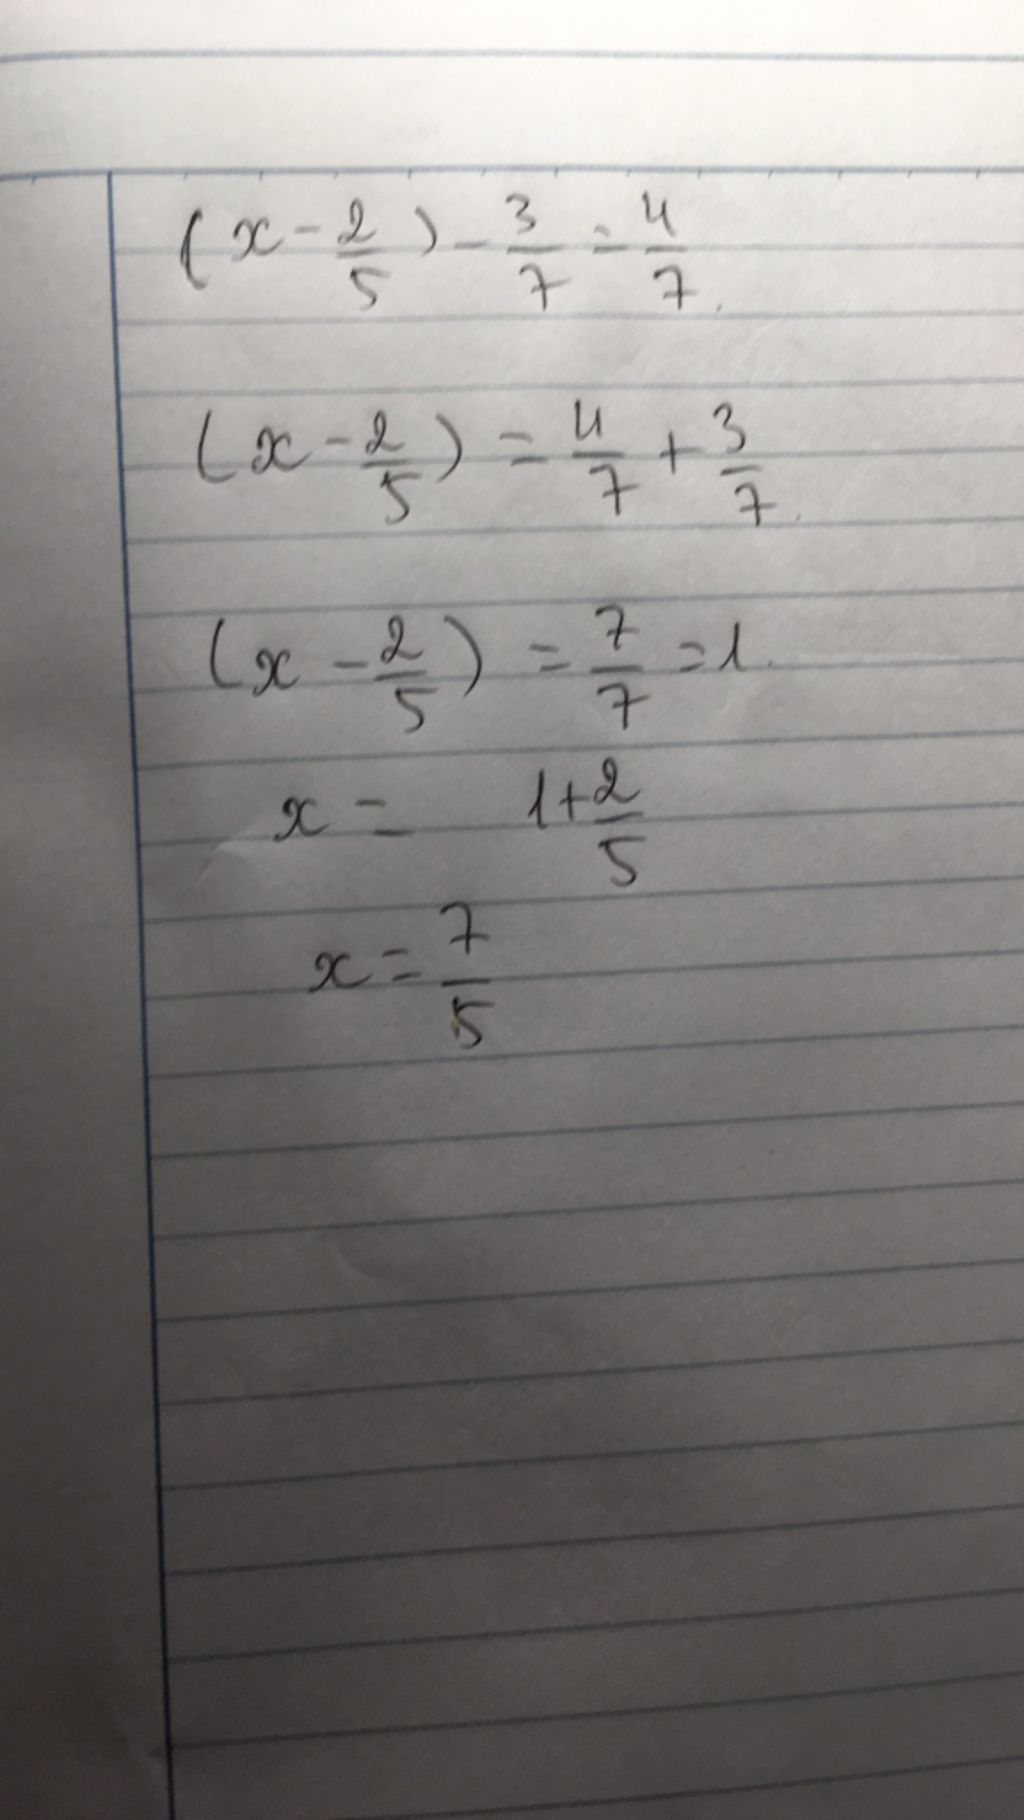 (x - 2/5) - 3/7 = 4/7.
(x - 2/5) = 4/7 + 3/7.
(x - 2/5) = 7/7 = 1.
x = 1 + 2/5
x = 7/5